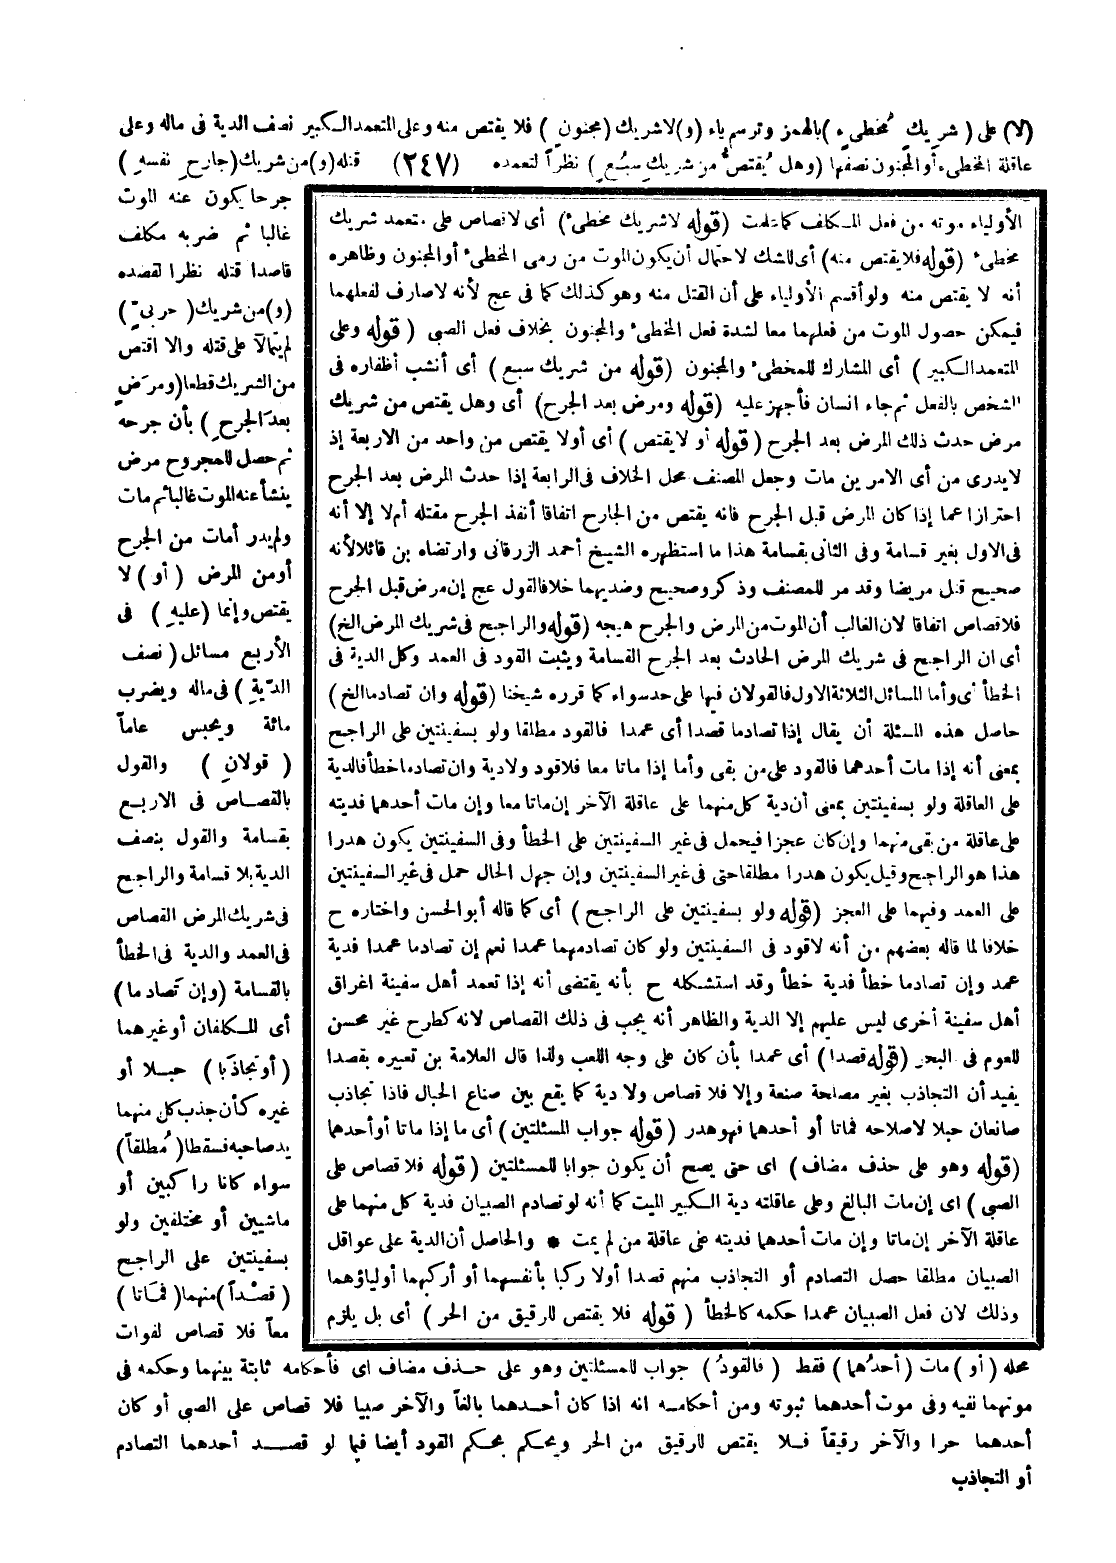 (لا) على (شريك مُخطيءٍ) بالهمز وترسم ياء (و) لا شريك (مجنونٍ) فلا يقتص منه وعلى المتعمد الكبير نصف الدية فى ماله وعلى
عاقلة المخطىء أو المجنون نصفها (وهل يُقتصُ من شريكِ سبُعٍ) نظراً لتعمده (٢٤٧) قتله (و) من شريك (جارحِ نفسهِ)
جرحا يكون عنه الموت
غالبا ثم ضربه مكلف
قاصدا قتله نظرا لقصده
(و) من شريك (حربىّ)
لم يتمالآ على قتله والا اقتص
من الشريك قطعا (ومرَضٍ
بعدَ الجرحِ) بأن جرحه
ثم حصل للمجروح مرض
ينشأ عنه الموت غالبا ثم مات
ولم يدر أمات من الجرح
أو من المرض (أو) لا
يقتص وإنما (عليهِ) فى
الأربع مسائل (نصف
الدّيةِ) فى ماله ويضرب
مائة ويحبس عاماً
(قولانِ) والقول
بالقصاص فى الاربع
بقسامة والقول بنصف
الدية بلا قسامة والراجح
فى شريك المرض القصاص
فى العمد والدية فى الخطأ
بالقسامة (وإن تَصادما)
أى المكلفان أو غيرهما
(أو تجاذَبا) حبلا أو
غيره كأن جذب كل منهما
يد صاحبه فسقطا (مُطلقاً)
سواء كانا راكبين أو
ماشيين أو مختلفين ولو
بسفينتين على الراجح
(قصْداً) منهما (فماتا)
معاً فلا قصاص لفوات
محله (أو) مات (أحدُهما) فقط (فالقودُ) جواب للمسئلتين وهو على حذف مضاف اى فأحكامه ثابتة بينهما وحكمه فى
موتهما نفيه وفى موت أحدهما ثبوته ومن أحكامه انه اذا كان أحدهما بالغاً والآخر صبيا فلا قصاص على الصبى أو كان
أحدهما حرا والآخر رقيقاً فلا يقتص للرقيق من الحر ويحكم بحكم القود أيضا فيما لو قصد أحدهما التصادم
أو التجاذب
الأولياء موته من فعل المكلف كما علمت (قوله لا شريك مخطىء) أى لا قصاص على متعمد شريك
مخطىء (قوله فلا يقتص منه) أى للشك لاحتمال أن يكون الموت من رمى المخطىء أو المجنون وظاهره
أنه لا يقتص منه ولو أقسم الأولياء على أن القتل منه وهو كذلك كما فى عج لأنه لا صارف لفعلهما
فيمكن حصول الموت من فعلهما معا لشدة فعل المخطىء والمجنون بخلاف فعل الصبى (قوله وعلى
المتعمد الكبير) أى المشارك للمخطىء والمجنون (قوله من شريك سبع) أى أنشب أظفاره فى
الشخص بالفعل ثم جاء انسان فأجهز عليه (قوله ومرض بعد الجرح) أى وهل يقتص من شريك
مرض حدث ذلك المرض بعد الجرح (قوله أو لا يقتص) أى أولا يقتص من واحد من الاربعة إذ
لا يدرى من أى الامرين مات وجعل المصنف محل الخلاف فى الرابعة إذا حدث المرض بعد الجرح
احترازا عما إذا كان المرض قبل الجرح فانه يقتص من الجارح اتفاقا أنفذ الجرح مقتله أم لا إلا أنه
فى الاول بغير قسامة وفى الثانى بقسامة هذا ما استظهره الشيخ أحمد الزرقانى وارتضاه بن قائلا لأنه
صحيح قتل مريضا وقد مر للمصنف وذكر وصحيح وضديهما خلافا لقول عج إن مرض قبل الجرح
فلا قصاص اتفاقا لان الغالب أن الموت من المرض والجرح هيجه (قوله والراجح فى شريك المرض الخ)
أى ان الراجح فى شريك المرض الحادث بعد الجرح القسامة ويثبت القود فى العمد وكل الدية فى
الخطأ أى وأما المسائل الثلاثة الاول فالقولان فيها على حد سواء كما قرره شيخنا (قوله وان تصادما الخ)
حاصل هذه المسئلة أن يقال إذا تصادما قصدا أى عمدا فالقود مطلقا ولو بسفينتين على الراجح
بمعنى أنه إذا مات أحدهما فالقود على من بقى وأما إذا ماتا معا فلا قود ولا دية وان تصادما خطأ فالدية
على العاقلة ولو بسفينتين بمعنى أن دية كل منهما على عاقلة الآخر إن ماتا معا وإن مات أحدهما فديته
على عاقلة من بقى منهما وإن كان عجزا فيحمل فى غير السفينتين على الخطأ وفى السفينتين يكون هدرا
هذا هو الراجح وقيل يكون هدرا مطلقا حتى فى غير السفينتين وإن جهل الحال حمل فى غير السفينتين
على العمد وفيهما على العجز (قوله ولو بسفينتين على الراجح) أى كما قاله أبو الحسن واختاره ح
خلافا لما قاله بعضهم من أنه لا قود فى السفينتين ولو كان تصادمهما عمدا نعم إن تصادما عمدا فدية
عمد وإن تصادما خطأ فدية خطأ وقد استشكله ح بأنه يقتضى أنه إذا تعمد أهل سفينة اغراق
أهل سفينة أخرى ليس عليهم إلا الدية والظاهر أنه يجب فى ذلك القصاص لانه كطرح غير محسن
للعوم فى البحر (قوله قصدا) أى عمدا بأن كان على وجه اللعب ولذا قال العلامة بن تعبيره بقصدا
يفيد أن التجاذب بغير مصلحة صنعة وإلا فلا قصاص ولا دية كما يقع بين صناع الحبال فاذا تجاذب
صانعان حبلا لاصلاحه فماتا أو أحدهما فهو هدر (قوله جواب المسئلتين) أى ما إذا ماتا أو أحدهما
(قوله وهو على حذف مضاف) اى حتى يصح أن يكون جوابا للمسئلتين (قوله فلا قصاص على
الصبى) اى إن مات البالغ وعلى عاقلته دية الكبير الميت كما أنه لو تصادم الصبيان فدية كل منهما على
عاقلة الآخر إن ماتا وإن مات أحدهما فديته على عاقلة من لم يمت * والحاصل أن الدية على عواقل
الصبيان مطلقا حصل التصادم أو التجاذب منهم قصدا أولا ركبا بأنفسهما أو أركبهما أولياؤهما
وذلك لان فعل الصبيان عمدا حكمه كالخطأ (قوله فلا يقتص للرقيق من الحر) أى بل يلزم